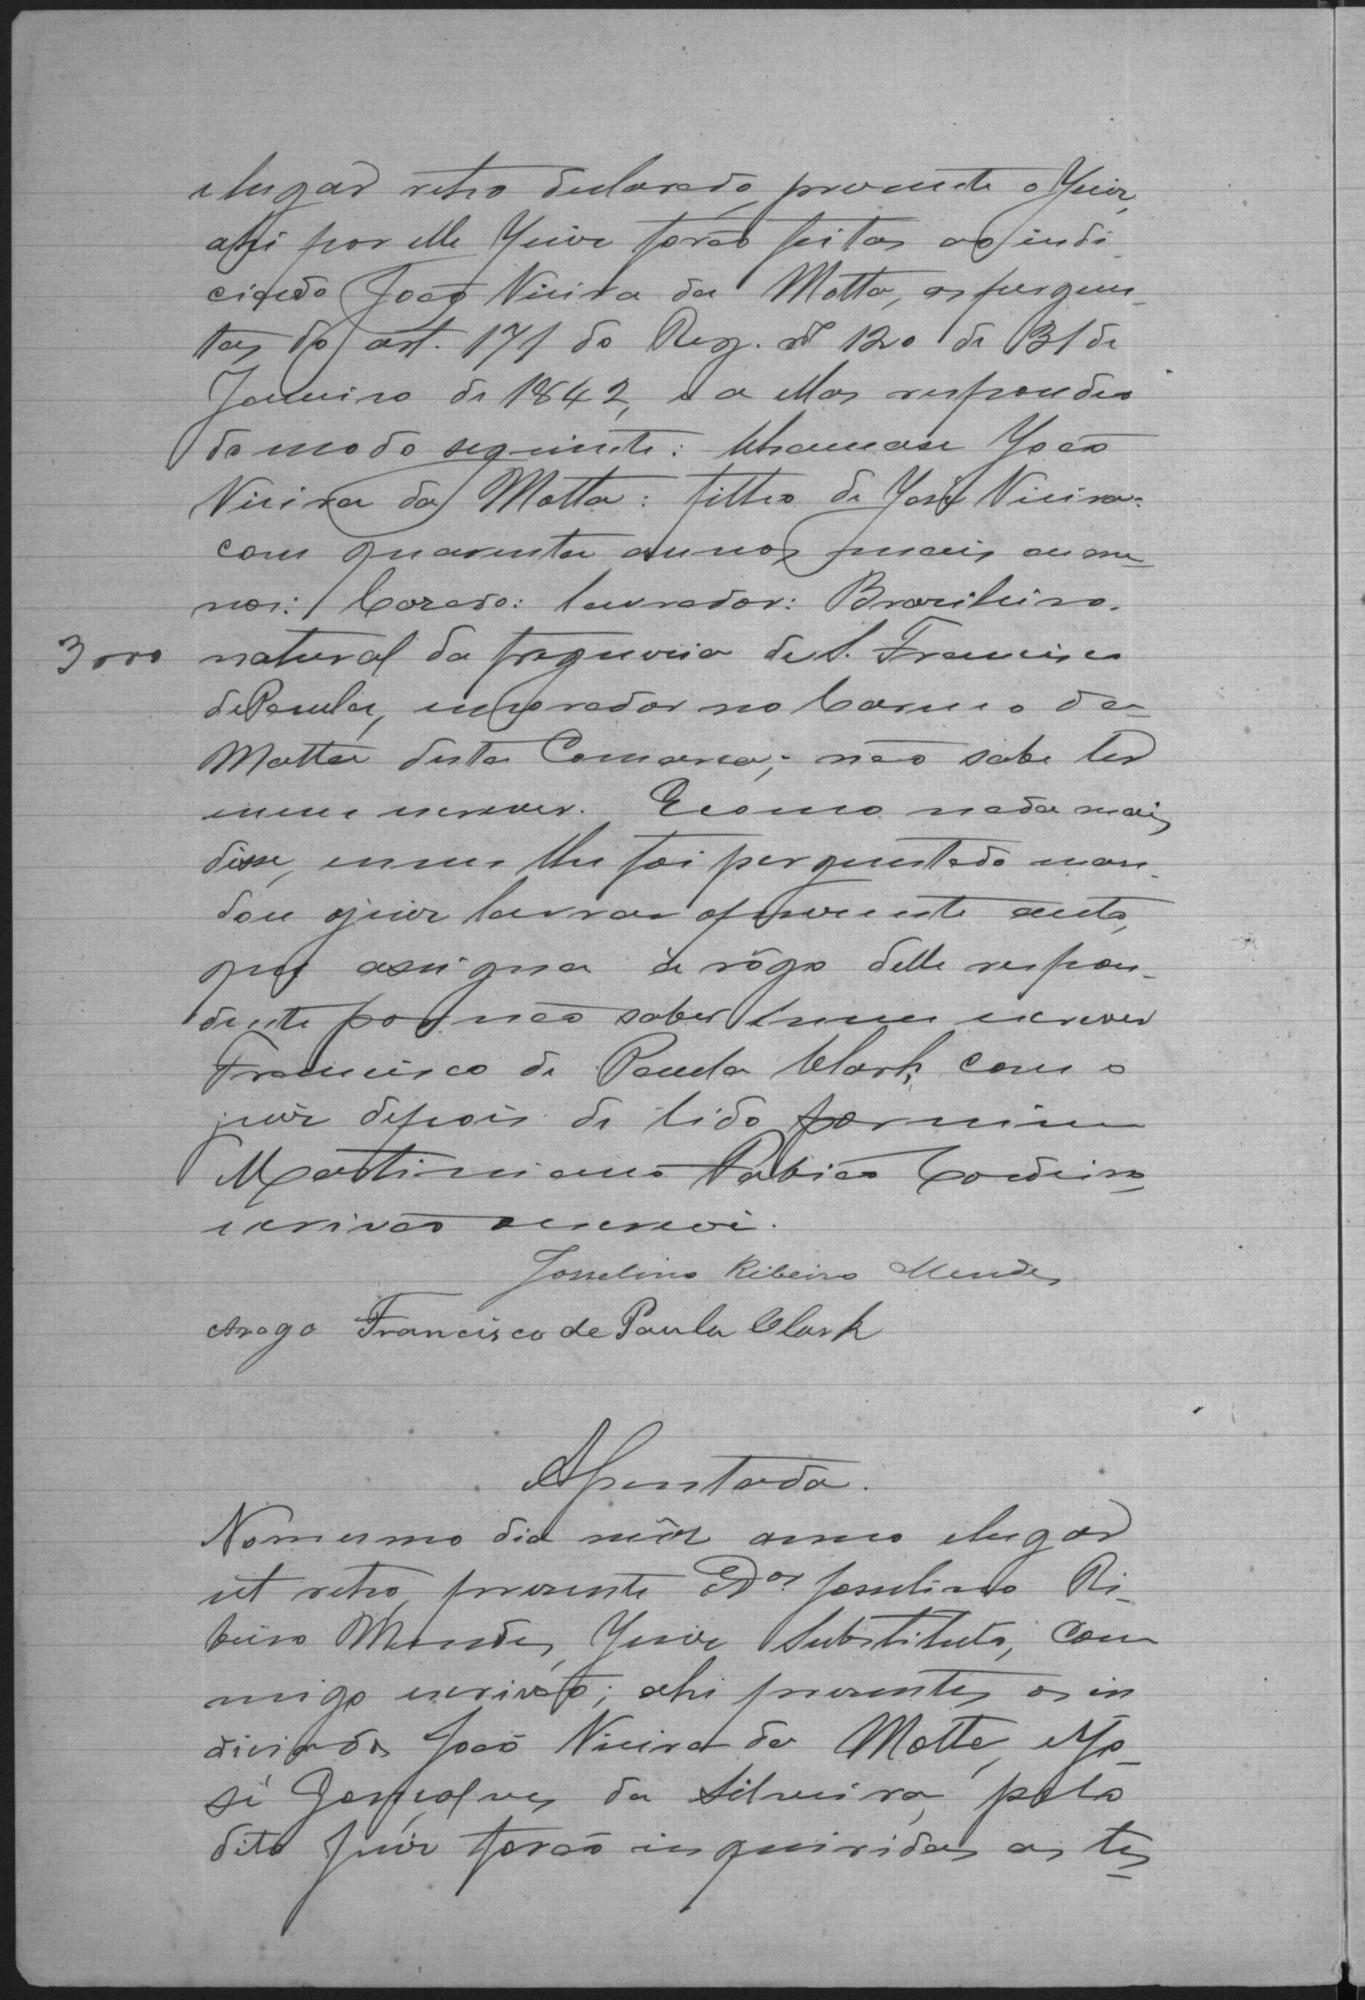 e lugar retro declarado, presente o Juiz,
ahi por elle Juiz forão feitas ao indi-
ciado João Vieira da Motta, as pergun-
tas do art. 171 do Reg. nº 120 de 31 de
Janeiro de 1842, e a ellas respondeo
do modo seguinte: Chamase João
Vieira da Motta: filho de José Vieira:
com quarenta annos mais ou me-
nos: Cazado: lavrador: Brazileiro.
3000
natural da freguezia de S. Francisco
de Paula, e morador no Carmo da
Matta desta Comarca; não sabe ler
nem escrever. E como nada mais
disse, e nem lhe foi perguntado man-
dou o juiz lavrar o presente auto,
que assigna a rôgo delle respon-
dente por não saber ler nem escrever
Francisco de Paula Clark, com o
juiz depois de lido por mim
Martimiano Fabião Cordeiro
escrivão o escrevi.
Josselino Ribeiro Mendes
Arogo Francisco de Paula Clark
Assentada.
No mesmo dia mêz anno e lugar
ut retro, presente o Dor. Josselino Ri-
beiro Mendes, Juiz Substituto, com
migo escrivão; ahi presentes os in
diciados João Vieira da Motta, e Jo-
sé Gonçalves da Silveira, pelo
dito Juiz forão inquiridas as tes